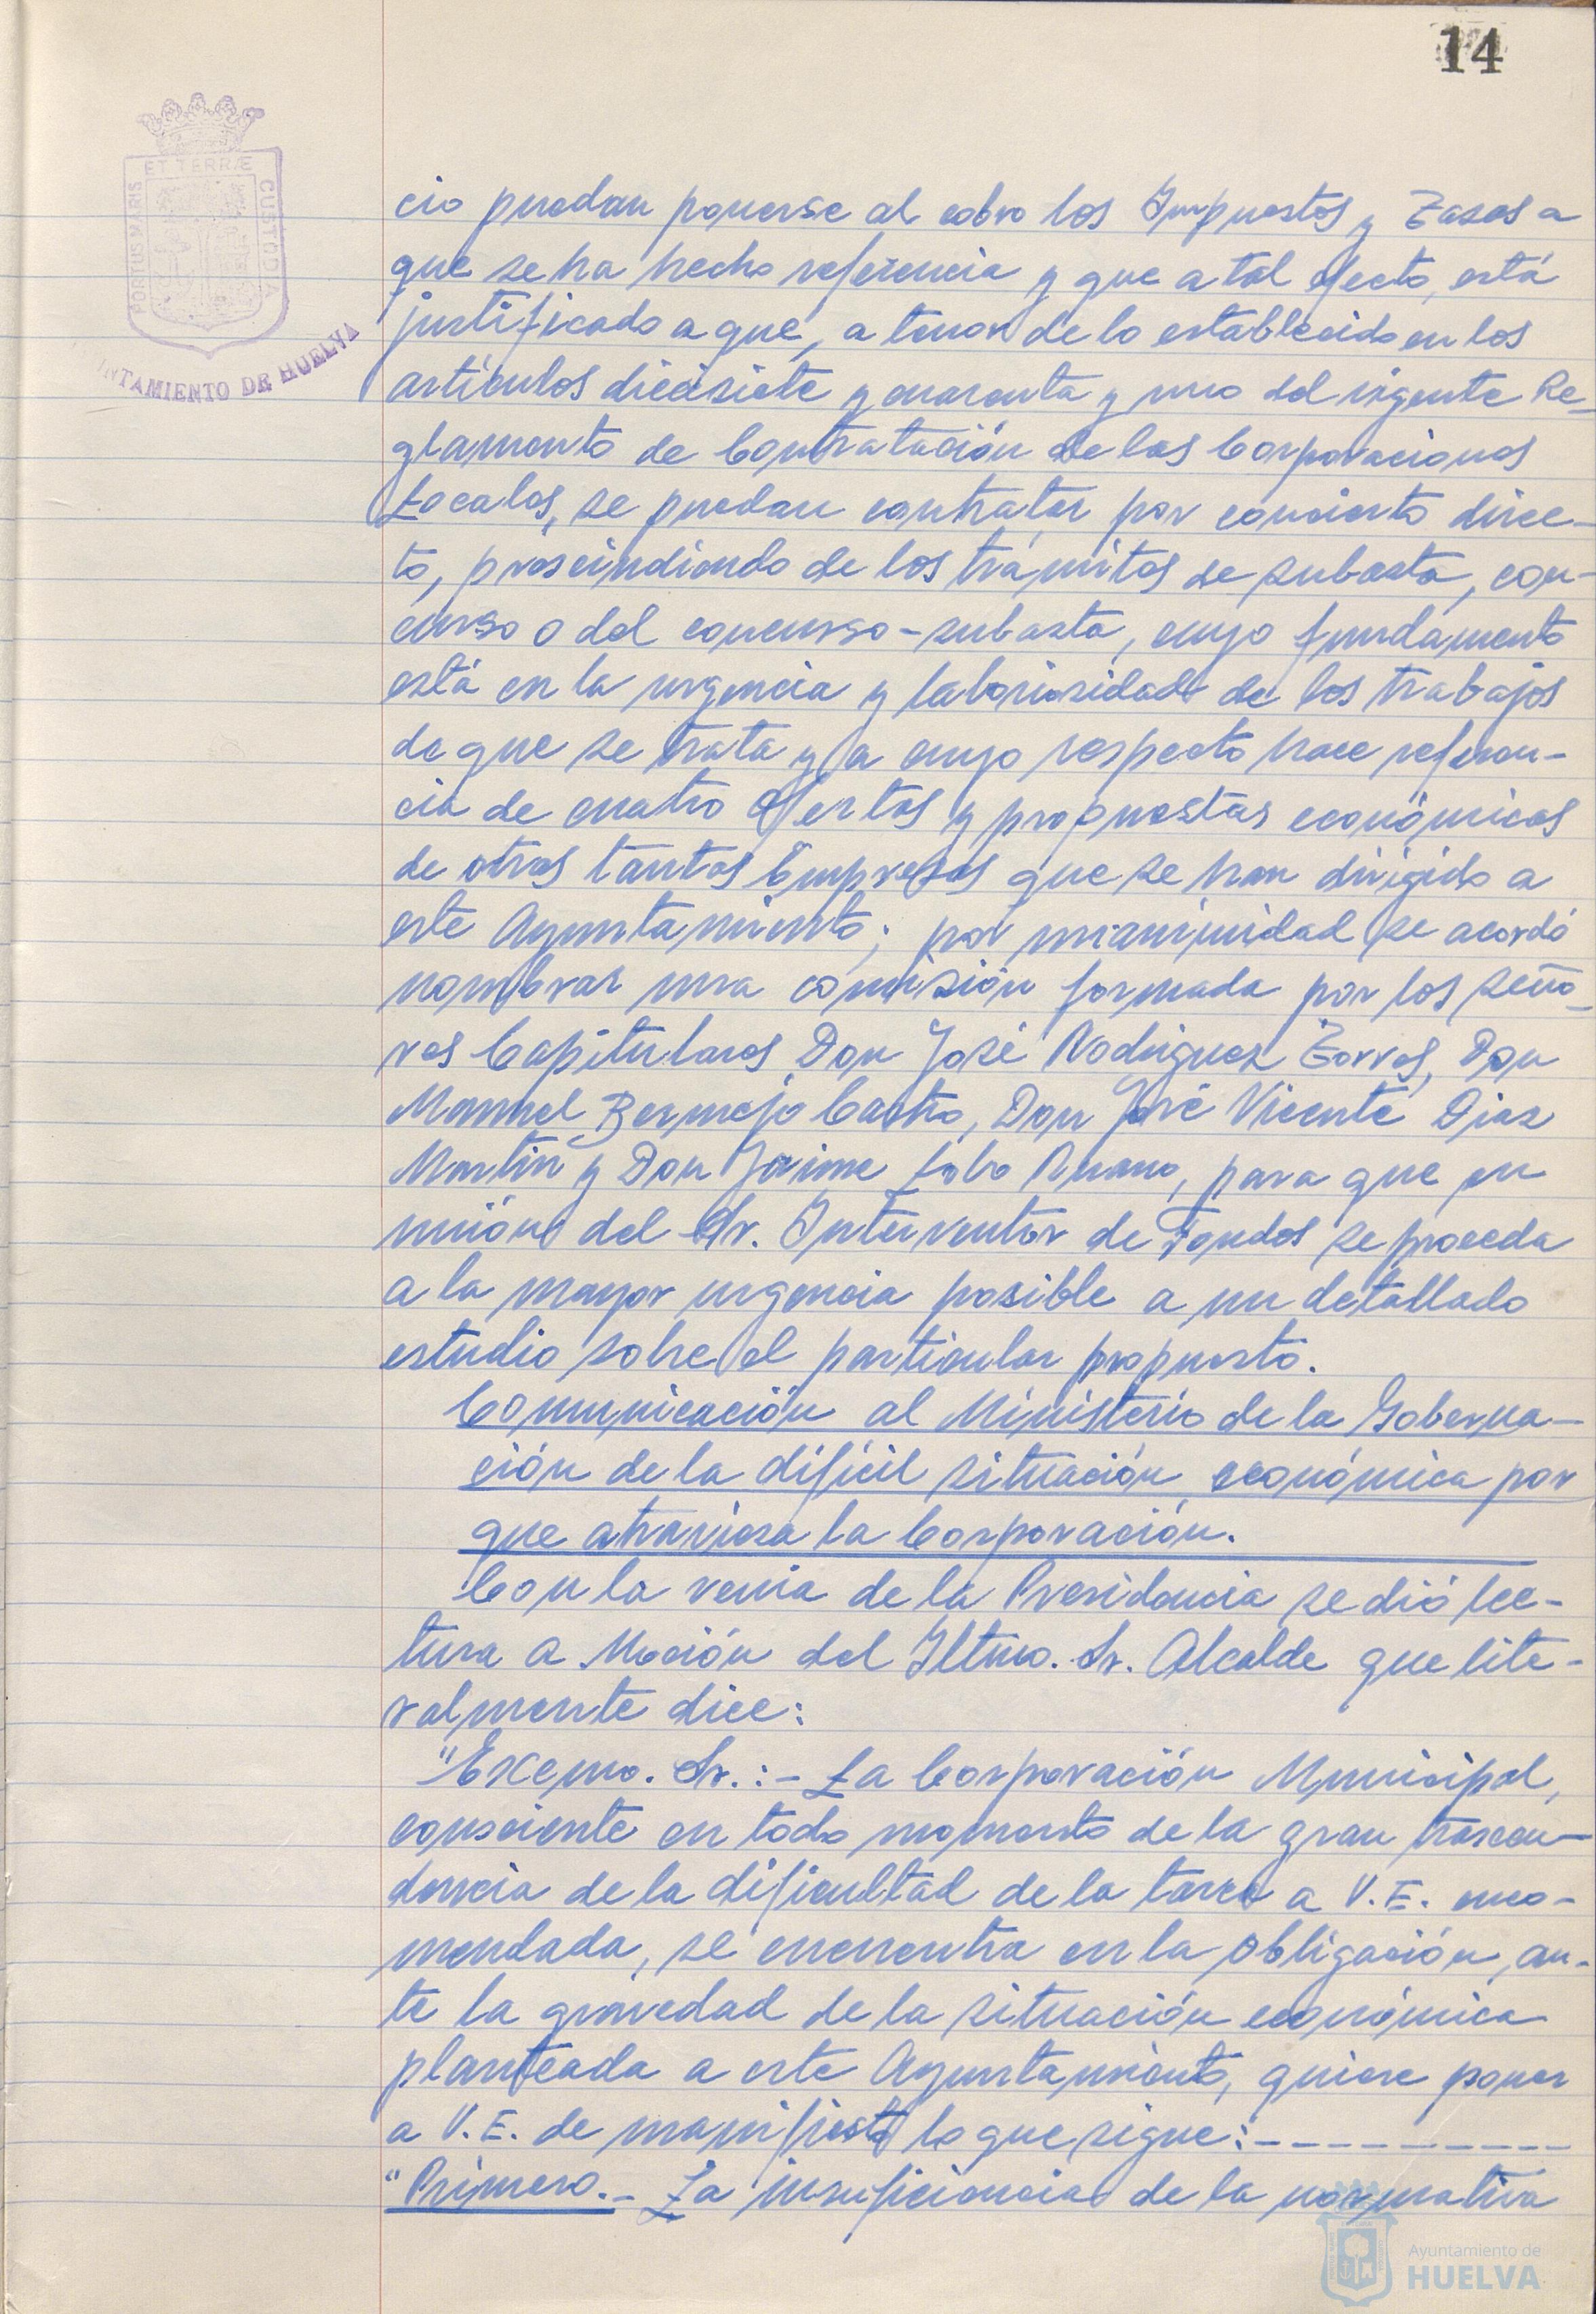 14
ET TERRÆ
PORTUS MARIS
CUSTODIA
NTAMIENTO DE HUELVA
cio puedan ponerse al cobro los Impuestos y Tasas a
que se ha hecho referencia y que a tal efecto, está
justificado a que, a tenor de lo establecido en los
artículos diecisiete y cuarenta y uno del vigente Re-
glamento de Contratación de las Corporaciones
Locales, se puedan contratar por concierto direc-
to, prescindiendo de los trámites de subasta, con-
curso o del concurso-subasta, cuyo fundamento
está en la urgencia y laboriosidad de los trabajos
de que se trata y a cuyo respecto hace referen-
cia de cuatro ofertas y propuestas económicas
de otras tantas Empresas que se han dirigido a
este Ayuntamiento; por unanimidad se acordó
nombrar una comisión formada por los seño-
res Capitulares Don José Rodríguez Torres, Don
Manuel Bermejo Castro, Don José Vicente Diaz
Martín y Don Jaime Lobo Ruano, para que en
unión del Sr. Interventor de Fondos se proceda
a la mayor urgencia posible a un detallado
estudio sobre el particular propuesto.
Comunicación al Ministerio de la Goberna-
ción de la difícil situación económica por
que atraviesa la Corporación.
Con la venia de la Presidencia se dió lec-
tura a Moción del Iltmo. Sr. Alcalde que lite-
ralmente dice:
"Excmo. Sr.:- La Corporación Municipal,
consciente en todo momento de la gran trascen-
dencia de la dificultad de la tarea a V.E. enco-
mendada, se encuentra en la obligación, an-
te la gravedad de la situación económica
planteada a este Ayuntamiento, quiere poner
a V.E. de manifiesto lo que sigue:----------
"Primero.- La insuficiencia de la normativa
Ayuntamiento de
HUELVA